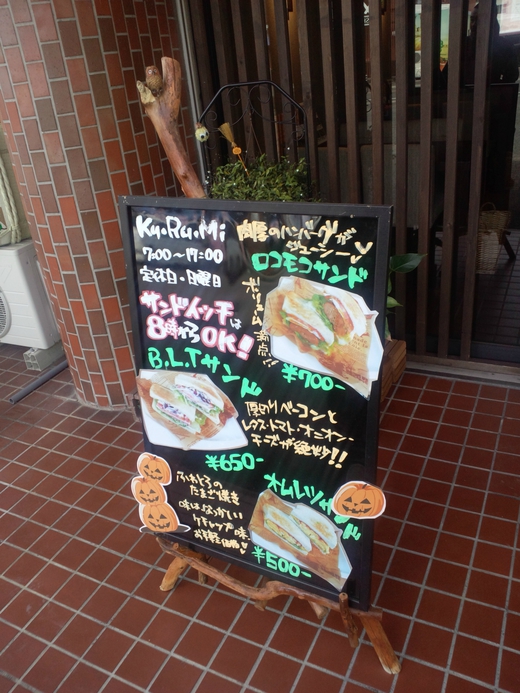 Ku・Ru・Mi
7:00〜17:00
定休日・日曜日
サンドイッチは
8時からOK!
肉厚のハンバーグが
ジューシー♪
ロコモコサンド
ボリューム満点!!
¥700-
B.L.Tサンド
厚切りベーコンと
レタス・トマト・オニオン・
チーズが絶妙!!
¥650-
オムレツサンド
ふわとろの
たまご焼き
味はなつかしい
ケチャップ味
お手軽価格♡
¥500-